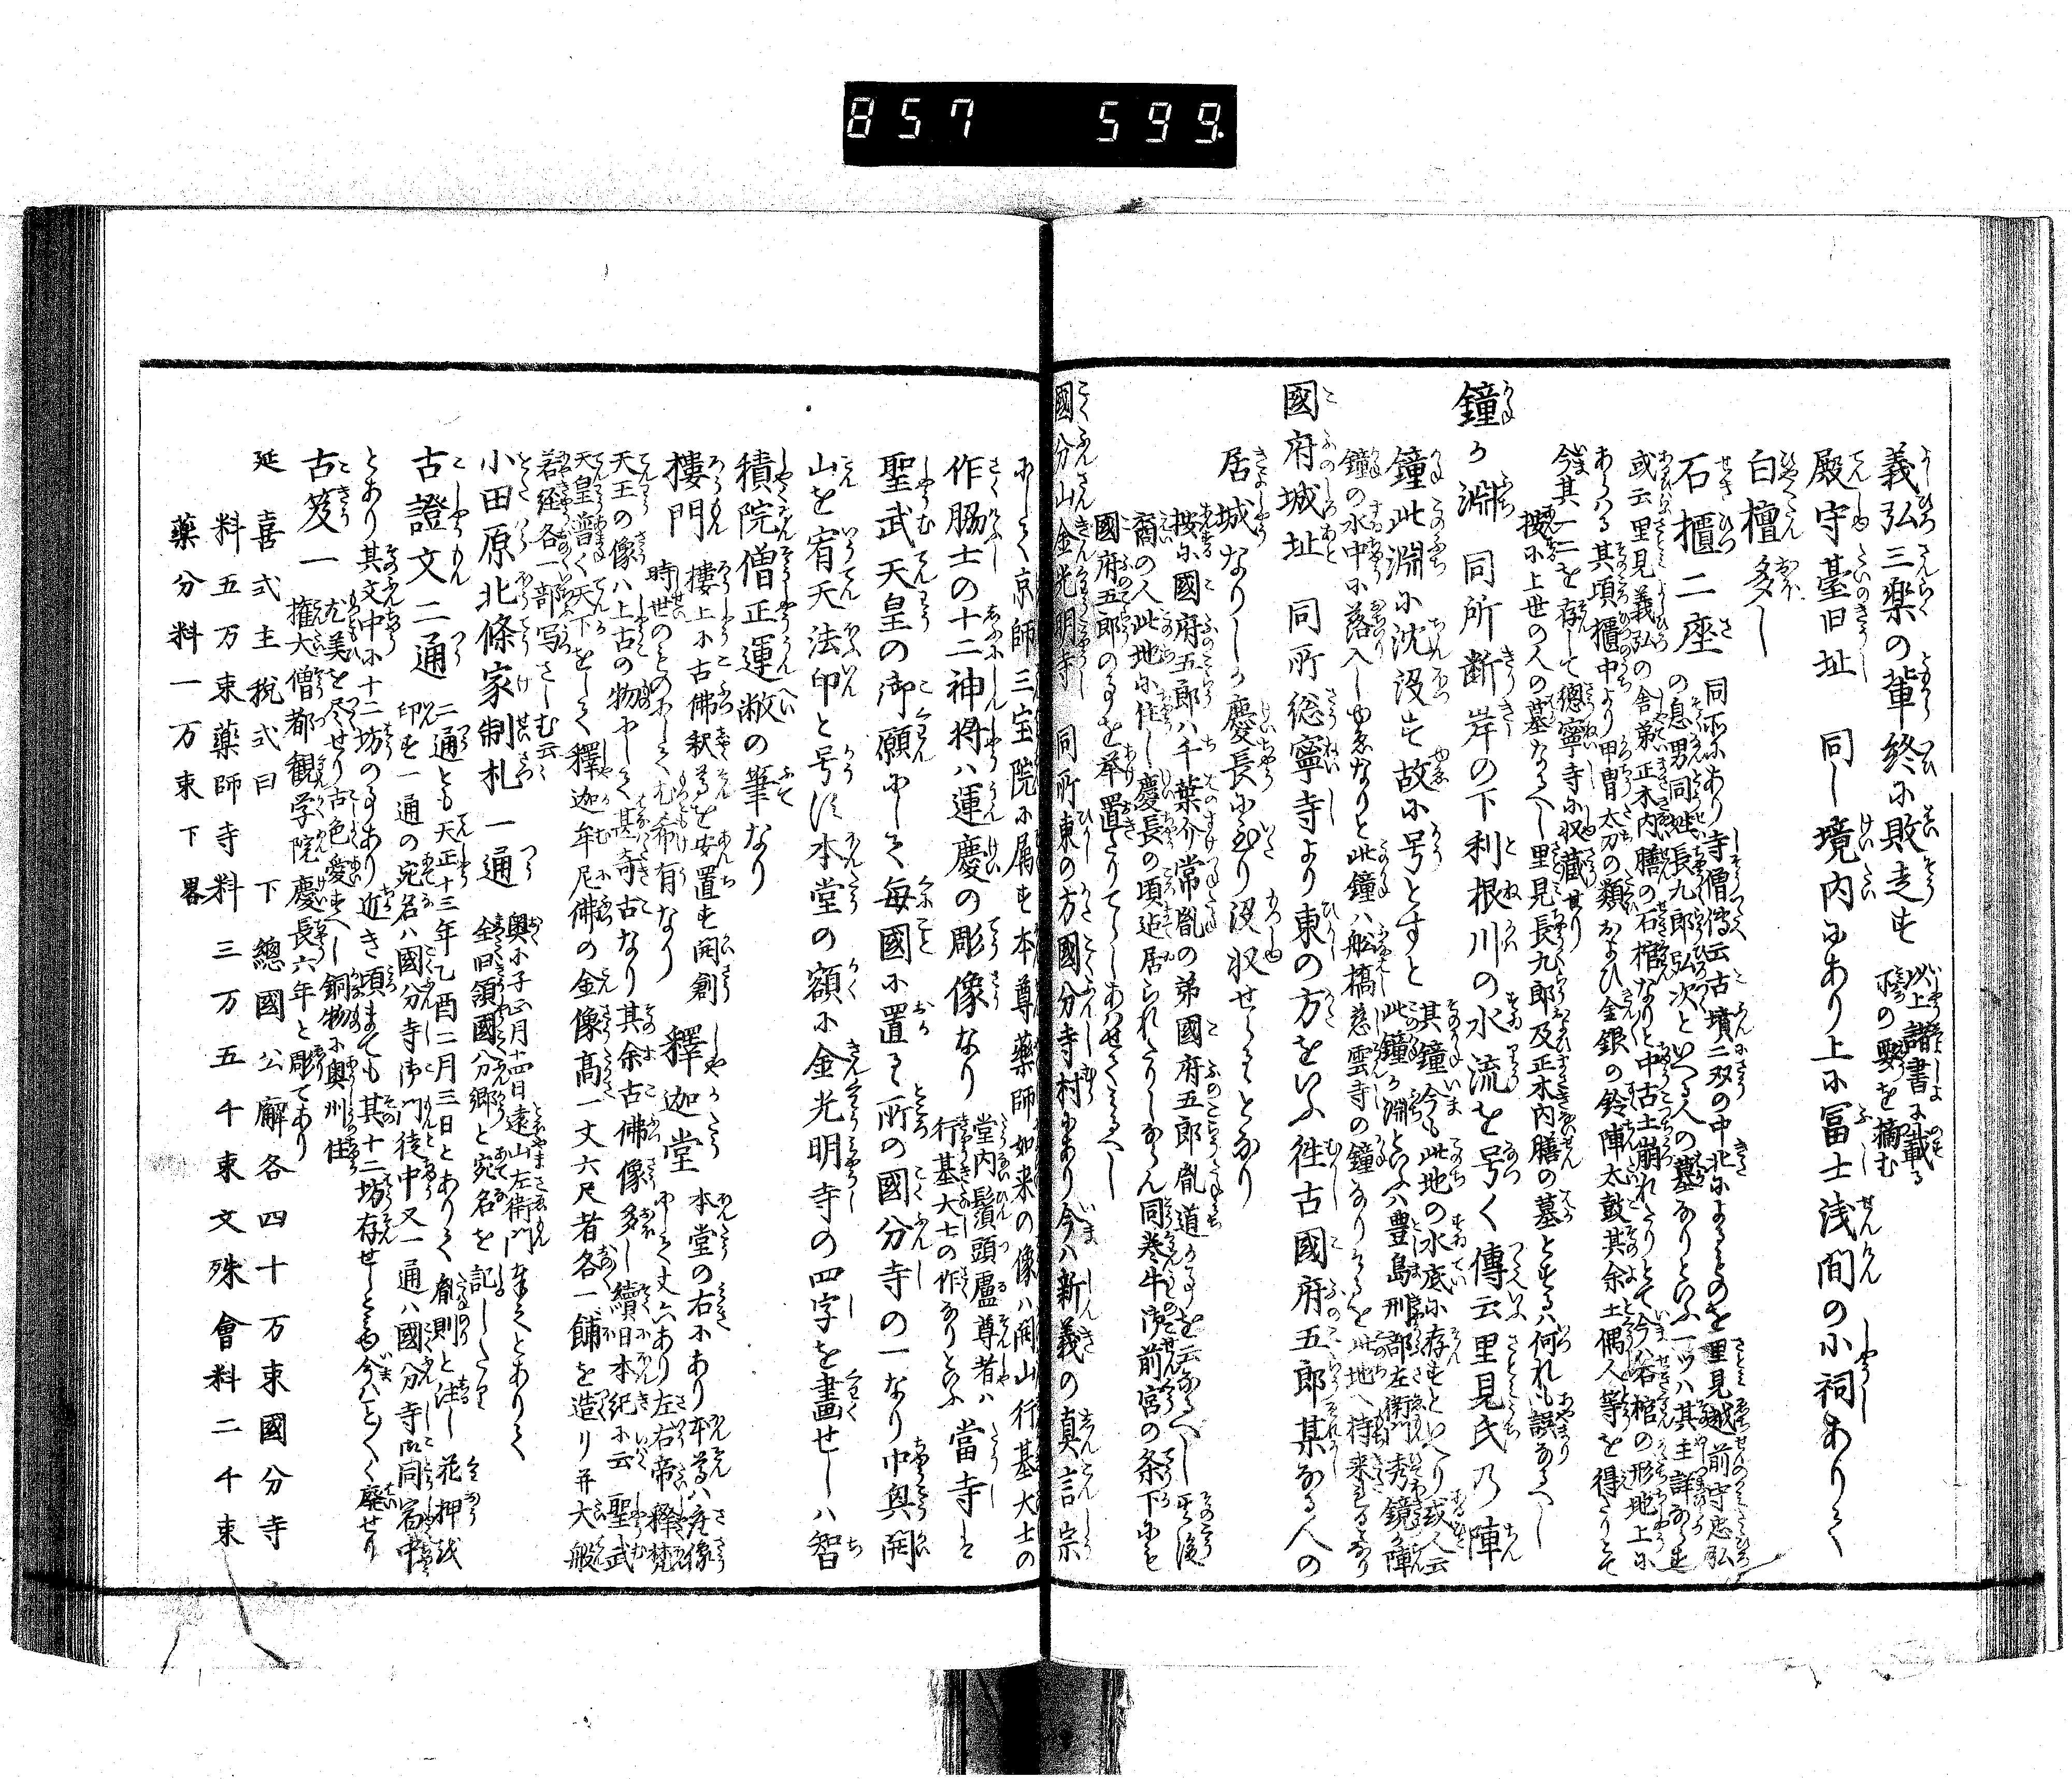 857 599.
義弘三楽の輩終に敗走す 以上諸書に載る
所の要を摘む
殿守臺旧址 同し境内にあり上に冨士浅間の小祠ありて
白檀多し
石櫃二座 同所にあり寺僧傳云古墳二双の中北によるものを里見越前守忠弘
の息男同姓長九郎弘次といへる人の墓なりといふ一ツハ其主詳ならす
或云里見義弘の舎弟正木内膳の石棺なりと中古土崩れたりとて今ハ石棺の形地上に
あらハる其頃櫃中より甲冑太刀の類および金銀の鈴陣太鼓其余土偶人等を得たりとそ
今其一二を存して總寧寺に収蔵せり
按に上世の人の墓なるへし里見長九郎及正木内膳の墓とするハ何れも誤なるへし
鐘か淵 同所断岸の下利根川の水流を号く傳云里見氏乃陣
鐘此淵に沈没す故に号とすと 其鐘今も此地の水底に存すといへり或人云
此鐘か淵といふハ豊島刑部左衛門秀鏡か陣
鐘の水中に落入しゆゑなりと此鐘ハ舩橋慈雲寺の鐘なりしを此地へ持来れるなり
國府城址 同所総寧寺より東の方をいふ往古國府五郎某なる人の
居城なりしか慶長に至り没収せらるゝとなり
按に國府五郎ハ千葉介常胤の弟國府五郎胤道かことを云なるへし其後
裔の人此地に住し慶長の頃迄居られたりしならん同巻牛渟前宮の条下にも
國府五郎のことを挙置たりてらしあはせてみるへし
國分山金光明寺 同所東の方國分寺村にあり今ハ新義の真言宗
にして京師三宝院に属す本尊薬師如来の像ハ開山行基大士の
作脇士の十二神将ハ運慶の彫像なり 堂内鬚頭盧尊者ハ
行基大士の作なりといふ 當寺は
聖武天皇の御願にして毎國に置る所の國分寺の一なり中興開
山を宥天法印と号す本堂の額に金光明寺の四字を画せしハ智
積院僧正運敞の筆なり
樓門 樓上に古佛釈尊を安置す開創
時世のものにして尤希有なり 釋迦堂 本堂の右にあり本尊ハ座像
にして丈六あり左右帝釋梵
天王の像ハ上古の物にして甚奇古なり其余古佛像多し續日本紀に云聖武
天皇普く天下をして釋迦牟尼佛の金像高一丈六尺者各一鋪を造り并大般
若経各一部写さしむ云云
小田原北條家制札 一通 奥に子正月十四日遠山左衛門奉之とありて
全旧領國分郷と宛名を記したり
古證文二通 二通とも天正十三年乙酉二月三日とありて胤則と注し花押或
印す一通の宛名ハ國分寺御門徒中又一通ハ國分寺同宿中
とあり其文中に十二坊のことあり近き頃まても其十二坊存せしとも今ハことことく廃せり
古笈一 尤美を尽せり古色愛すへし銅物に奥州住
権大僧都観学院慶長六年と彫てあり
延喜式主稅式曰 下總國公廨各四十万束國分寺
料五万束藥師寺料三万五千束文殊會料二千束
藥分料一万束下畧